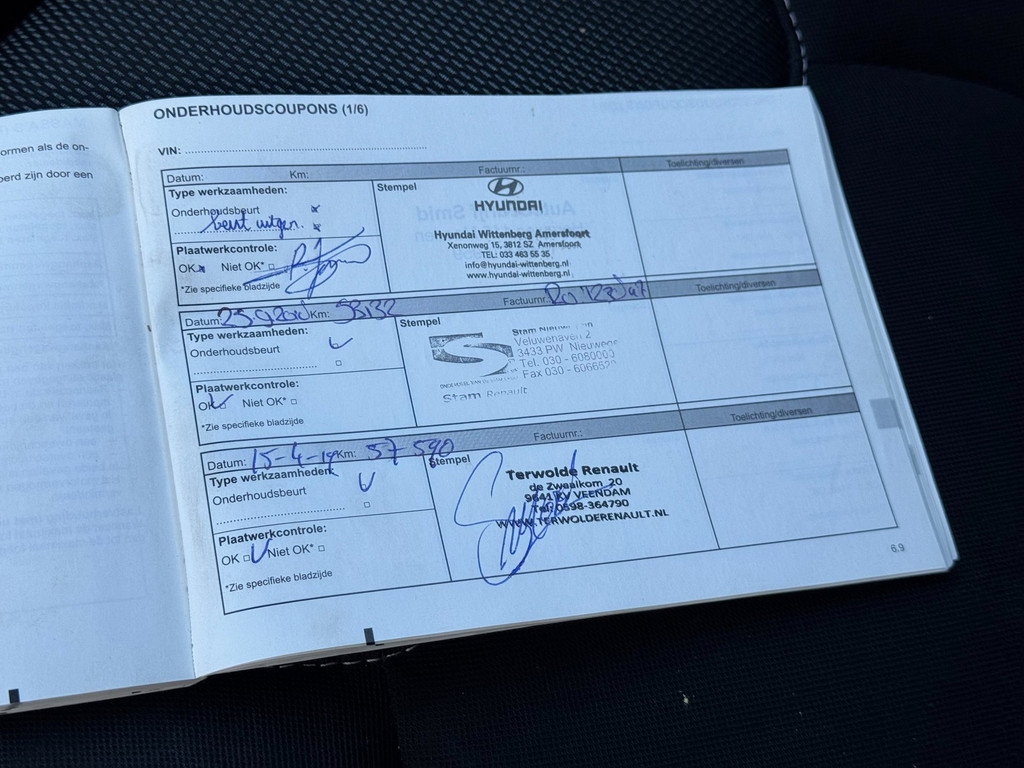 ormen als de on-
oerd zijn door een
ONDERHOUDSCOUPONS (1/6)
VIN:
Datum: Km: Factuurnr.: Toelichting/diversen
Type werkzaamheden:
Onderhoudsbeurt
beurt uitgev.
Plaatwerkcontrole:
OK Niet OK*
*Zie specifieke bladzijde
Stempel
HYUNDAI
Hyundai Wittenberg Amersfoort
Xenonweg 15, 3812 SZ Amersfoort
TEL: 033 463 55 35
info@hyundai-wittenberg.nl
www.hyundai-wittenberg.nl
Datum: Km: 53132 Factuurnr.: Toelichting/diversen
Type werkzaamheden:
Onderhoudsbeurt
Plaatwerkcontrole:
OK Niet OK*
*Zie specifieke bladzijde
Stempel
Stam
Veluwehaven 2
3433 PW Nieuwege
Tel. 030 - 6080003
Fax 030 -
Stam Renault
Datum: 15-4-19 Km: 57 590 Factuurnr.: Toelichting/diversen
Type werkzaamheden:
Onderhoudsbeurt
Plaatwerkcontrole:
OK Niet OK*
*Zie specifieke bladzijde
Stempel
Terwolde Renault
de Zwaaikom 20
9641 KV VEENDAM
Tel: 0598-364790
WWW.TERWOLDERENAULT.NL
6.9